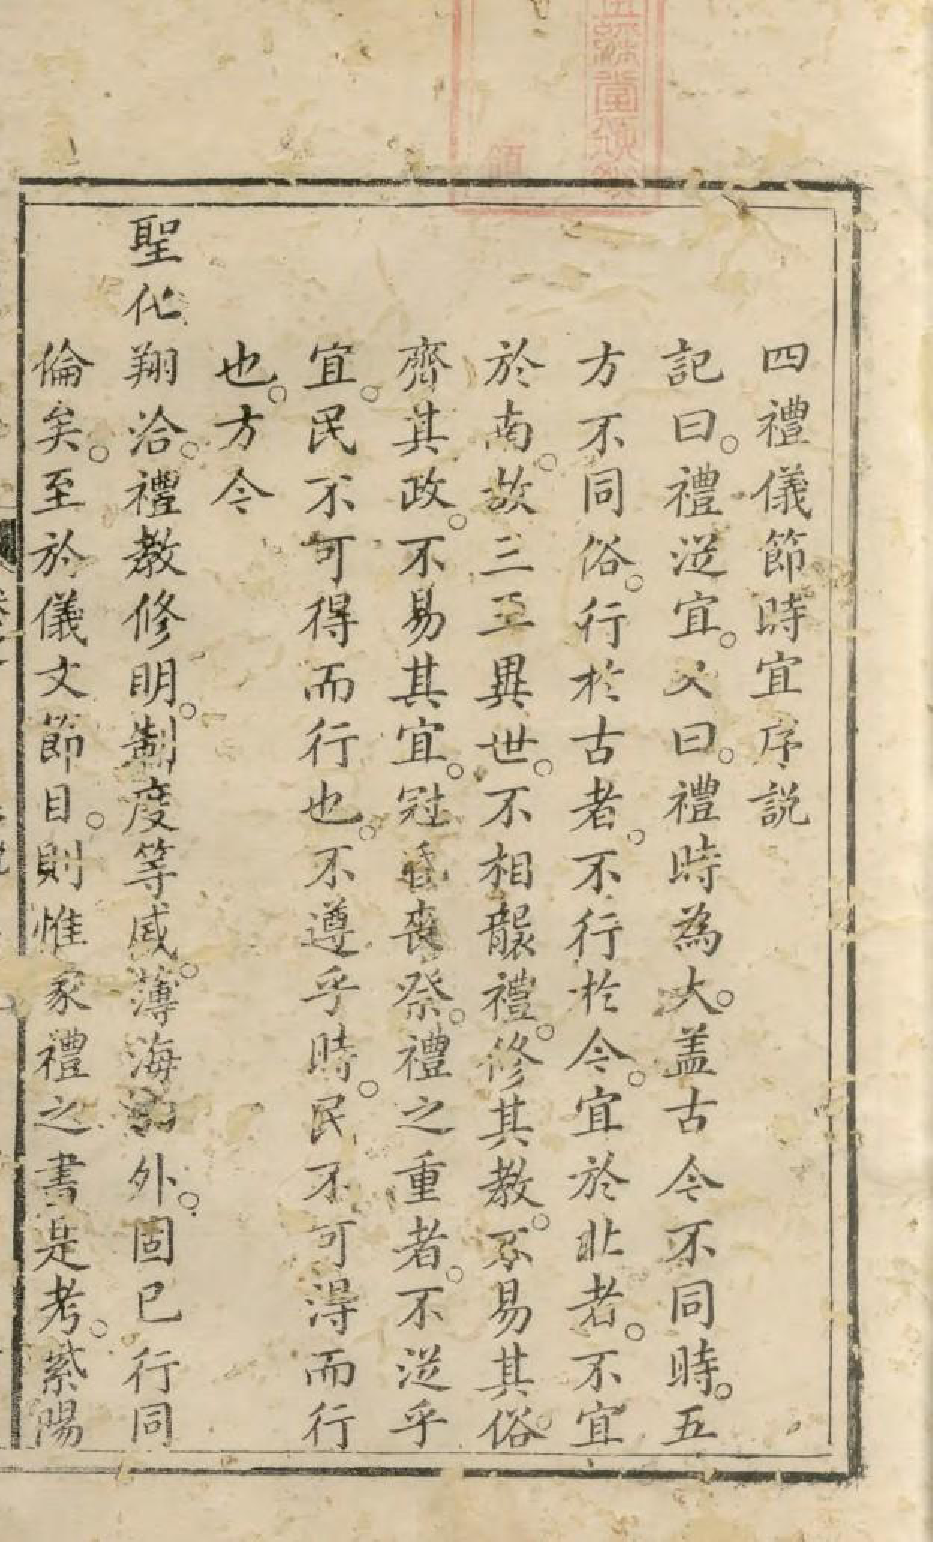 四禮儀節時宜序説
記曰。禮從宜。又曰。禮時為大。盖古今不同時。五
方不同俗。行於古者。不行於今。宜於北者。不宜
於南。故三王異世。不相襲禮。修其教。不易其俗。
齊其政。不易其宜。冠昏喪祭。禮之重者。不從乎
宜。民不可得而行也。不遵乎時。民不可得而行
也。方今
聖化翔洽。禮教修明。制度等威。薄海內外。固已行同
倫矣。至於儀文節目。則惟家禮之書是考。紫陽